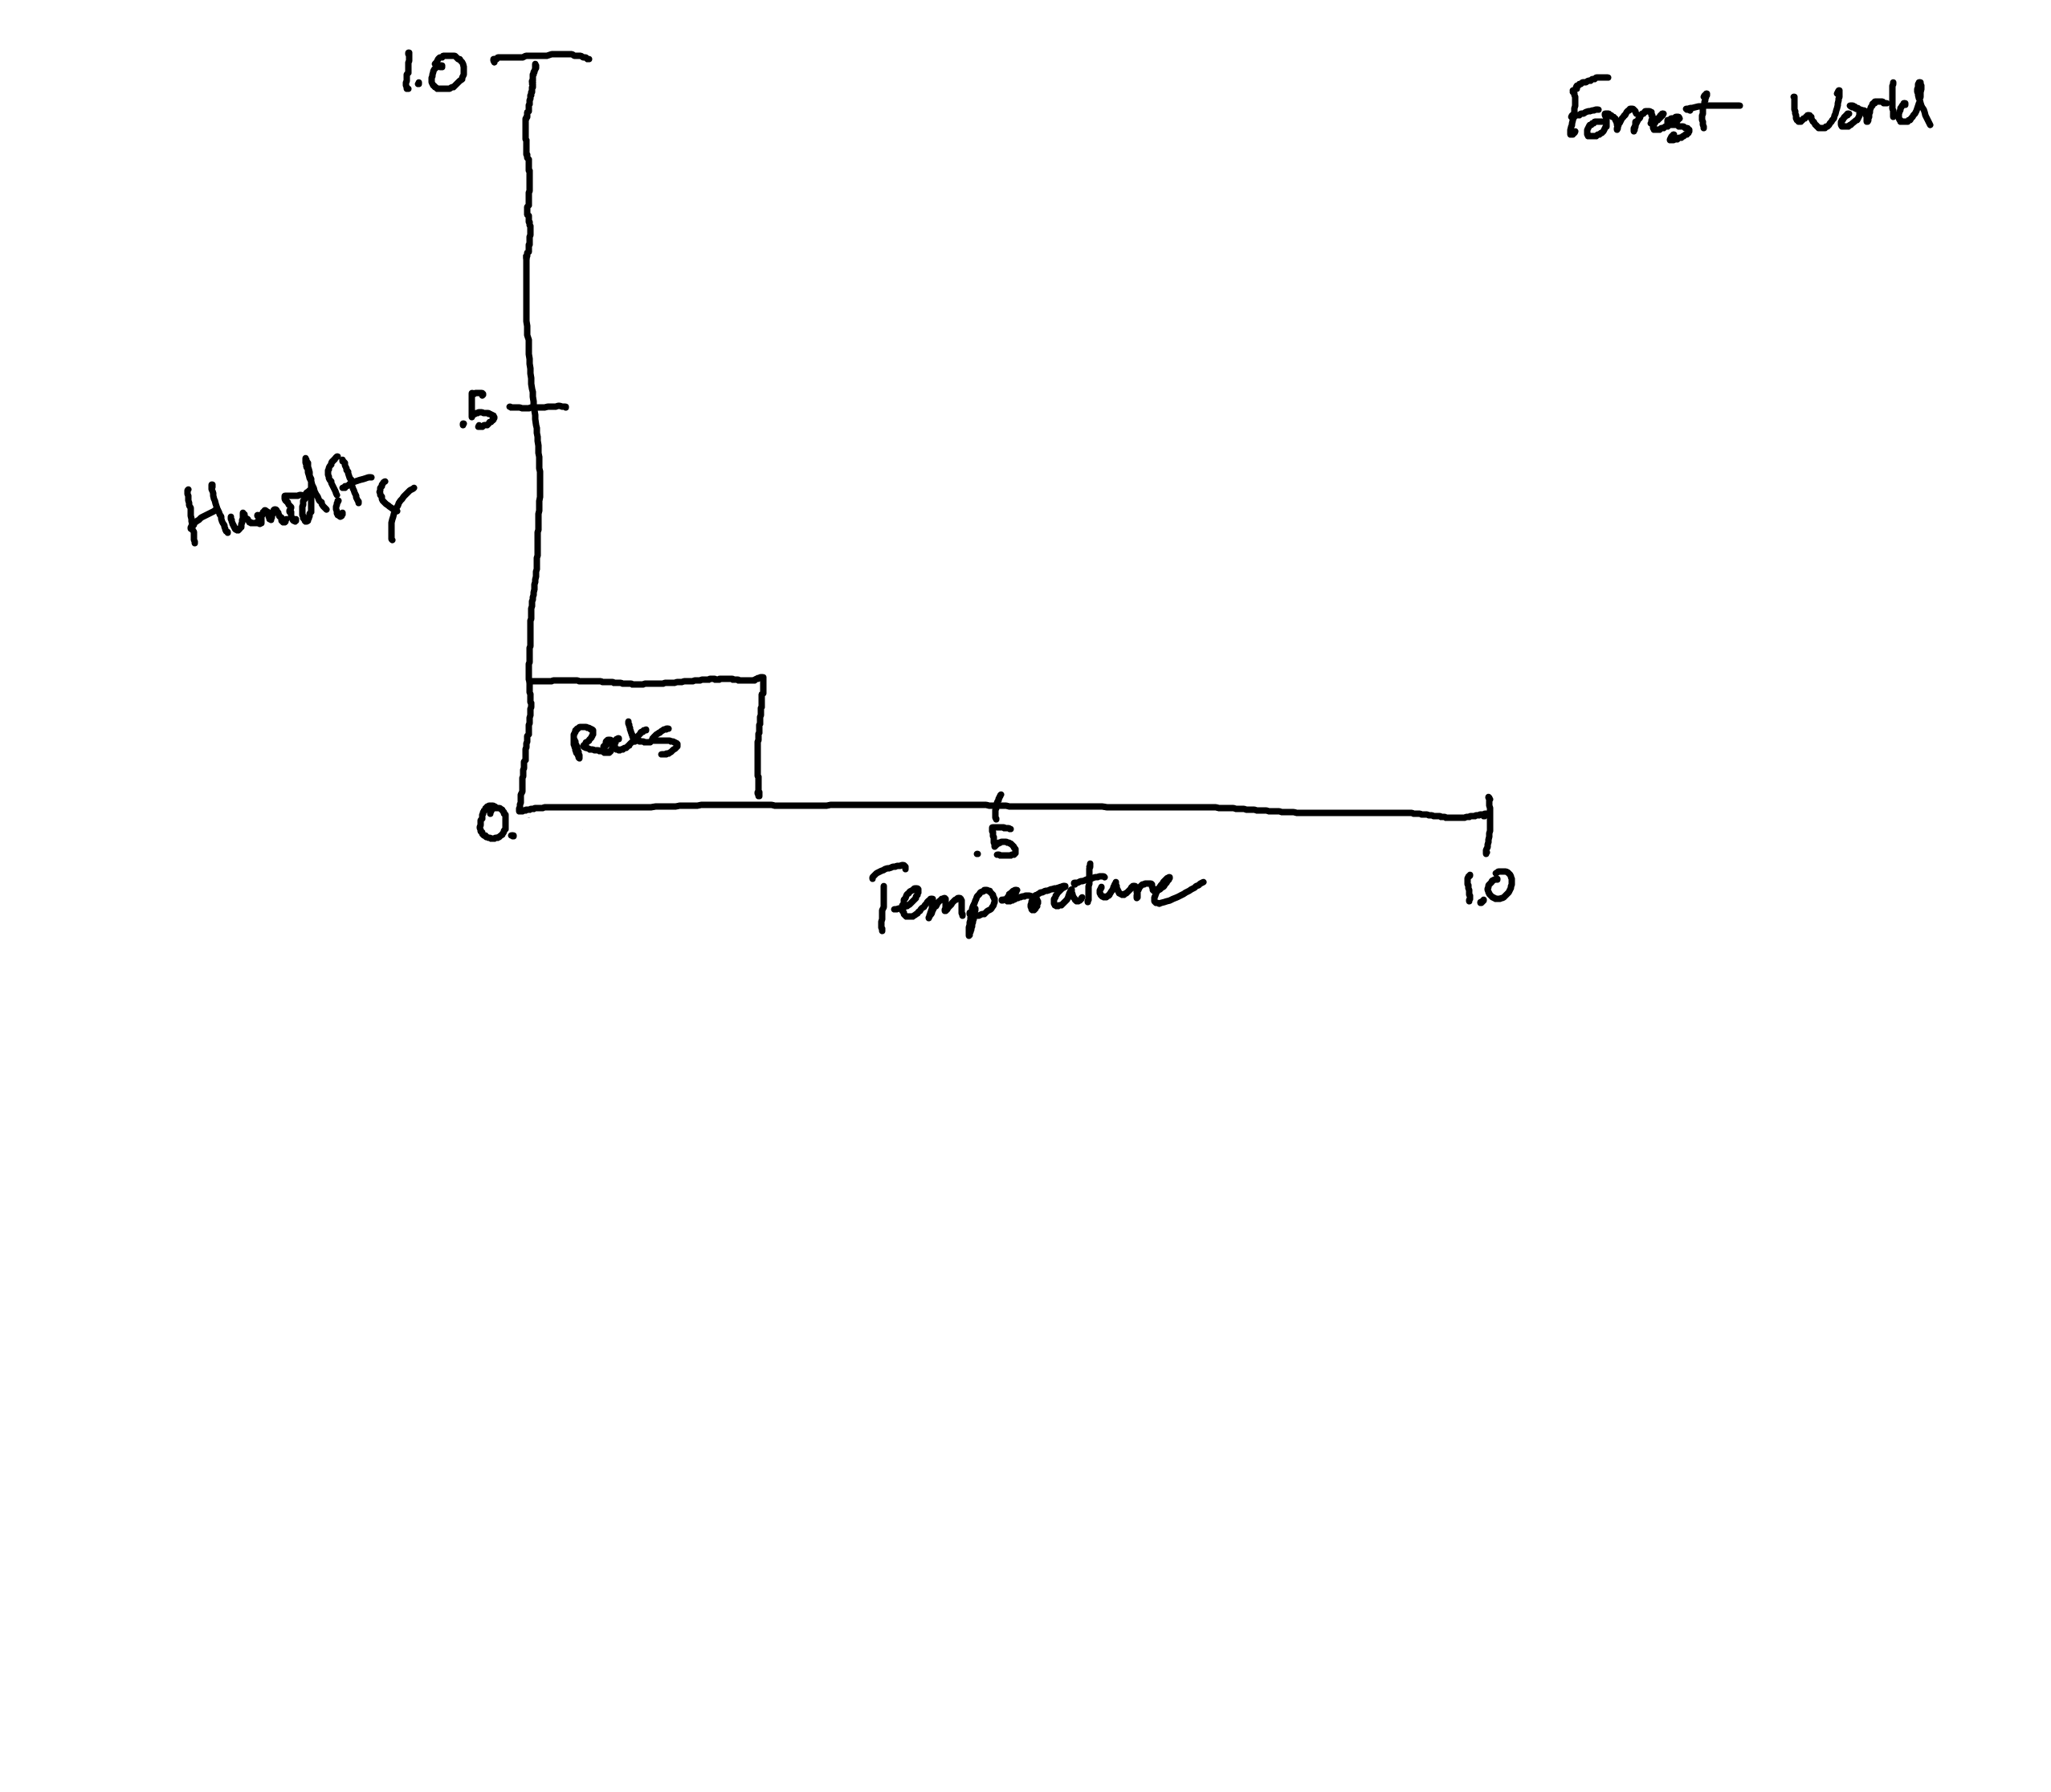 1.0
Forrest World
.5
Humidity
Rocks
0.
.5
Temperature
1.0